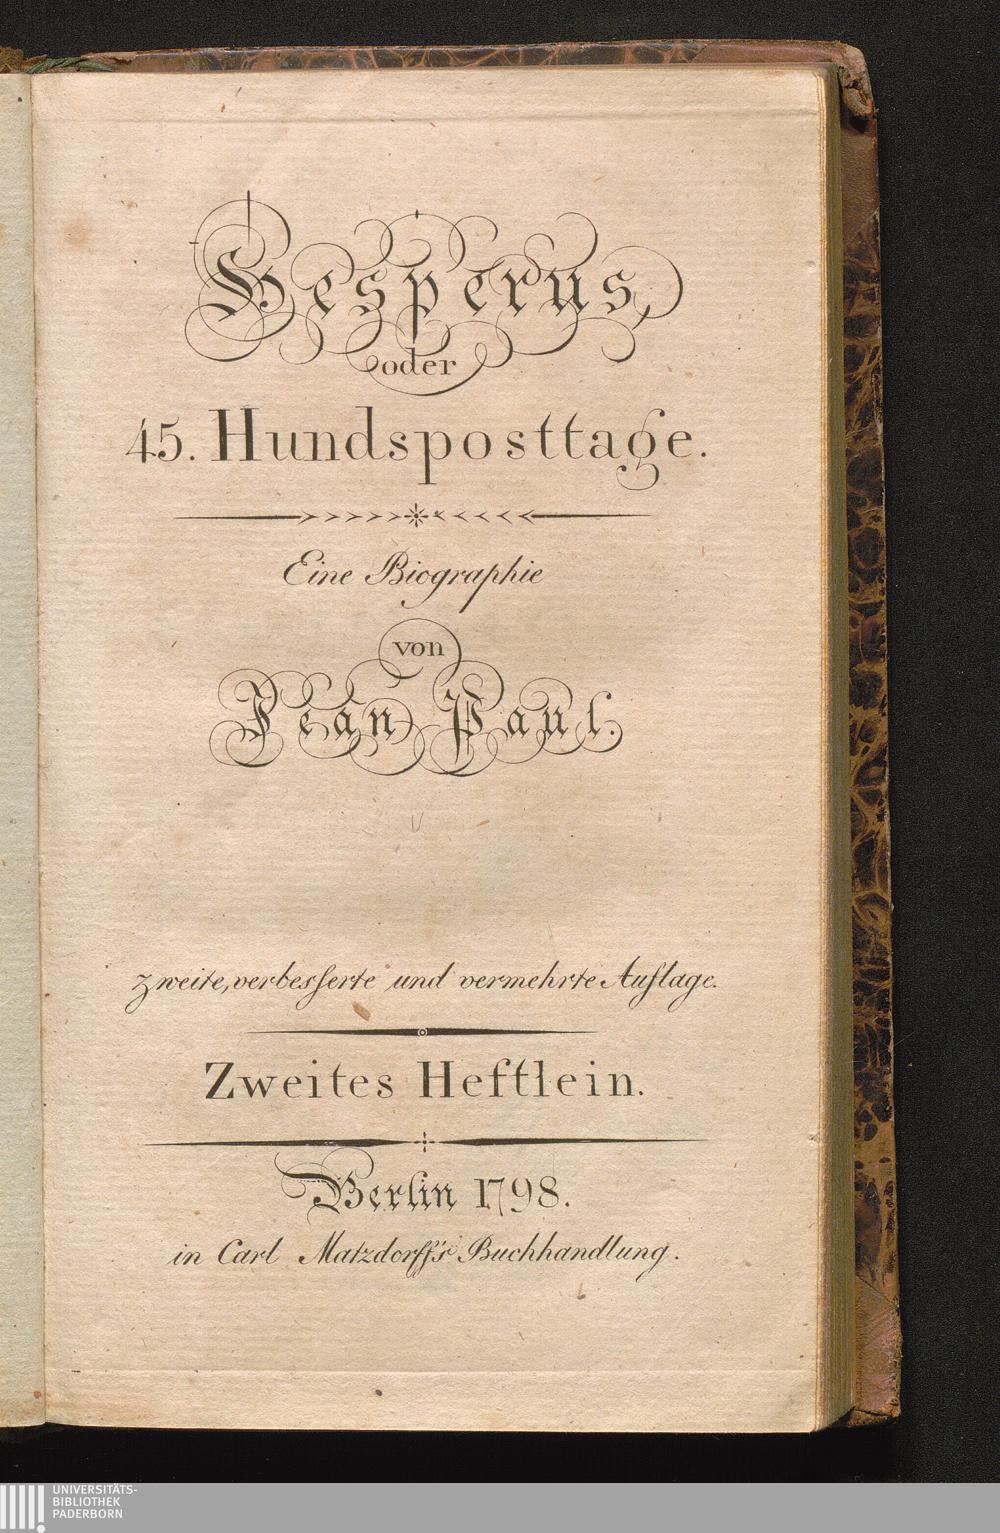 Hesperus,
oder
45. Hundsposttage.
Eine Biographie
von
Jean Paul.
Zweite, verbesserte und vermehrte Auflage.
Zweites Heftlein.
Berlin 1798.
in Carl Matzdorff's Buchhandlung.
UNIVERSITÄTS-
BIBLIOTHEK
PADERBORN